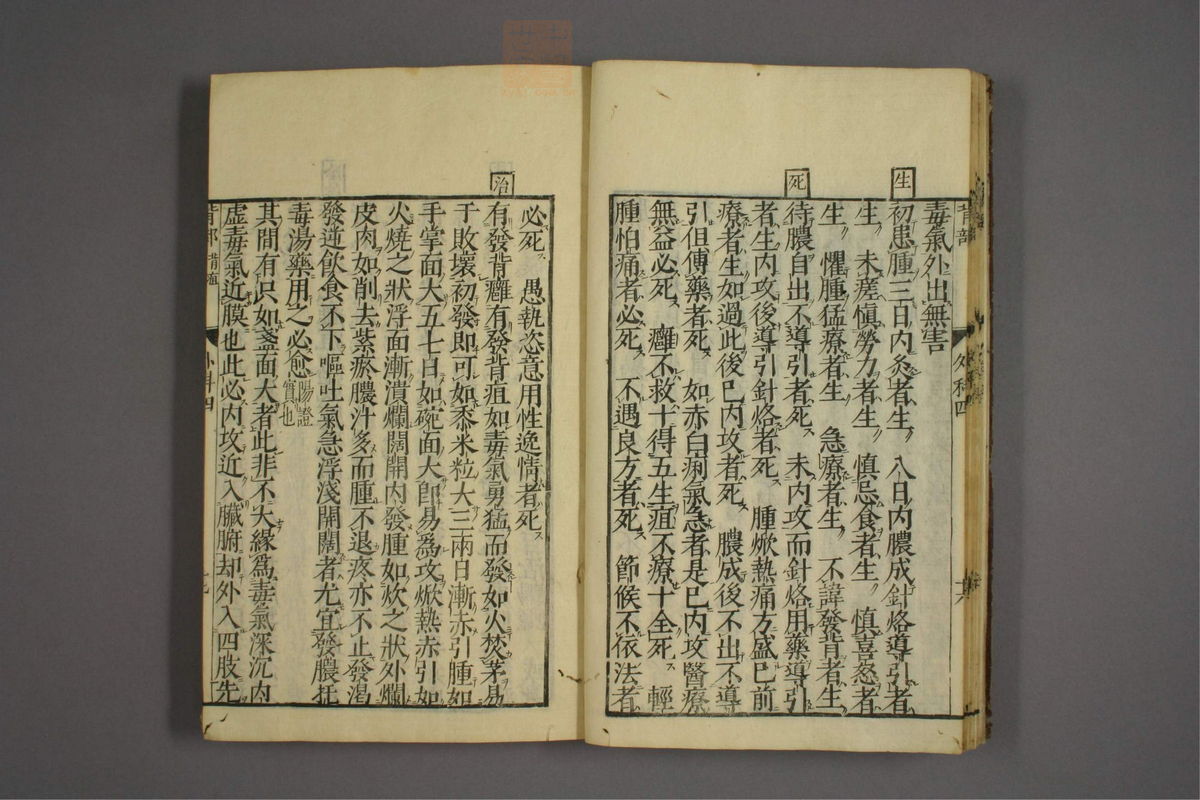 背部 外科四 十八
毒氣外出無害
生
初患腫三日內灸者生 八日內膿成針烙導引者
生 未瘥愼勞力者生 慎忌食者生 慎喜怒者
生 懼腫猛療者生 急療者生 不諱發背者生
死
待膿自出不導引者死 未內攻而針烙用藥導引
者生內攻後導引針烙者死 腫焮熱痛方盛已前
療者生如過此後已內攻者死 膿成後不出不導
引但傅藥者死 如赤白痢氣急者是已內攻醫療
無益必死 癰不救十得五生疽不療十全死 輕
腫怕痛者必死 不遇良方者死 節候不依法者
必死 愚執恣意用性逸情者死
治
有發背癰有發背疽如毒氣勇猛而發如火焚茅易
于敗壞初發即可如黍米粒大三兩日漸赤引腫如
手掌面大五七日如碗面大即易爲攻焮熱赤引如
火燒之狀浮面漸潰爛闊開內發腫如炊之狀外爛
皮肉如削去紫瘀膿汁多而腫不退疼亦不止發渴
發逆飲食不下嘔吐氣急浮淺開闊者尤宜發膿托
毒湯藥用之必愈陽證實也
其間有只如盞面大者此非不大緣爲毒氣深沉內
虛毒氣近膜也此必內攻近入臟腑却外入四肢先
背部 背疽 外科四